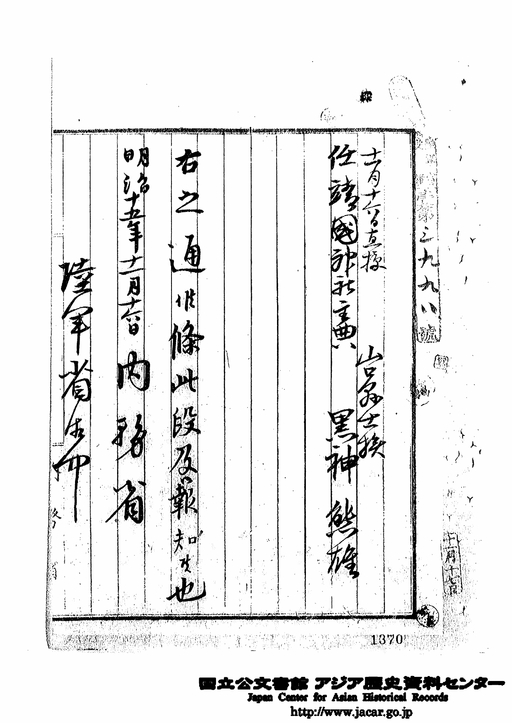 第三九九八號
十一月十六日直接
山口縣士族
任靖國神社主典 黒神熊雄
右之通候條此段及報知候也
明治十五年十一月十六日 内務省
陸軍省御中
1370
国立公文書館 アジア歴史資料センター
Japan Center for Asian Historical Records
http://www.jacar.go.jp